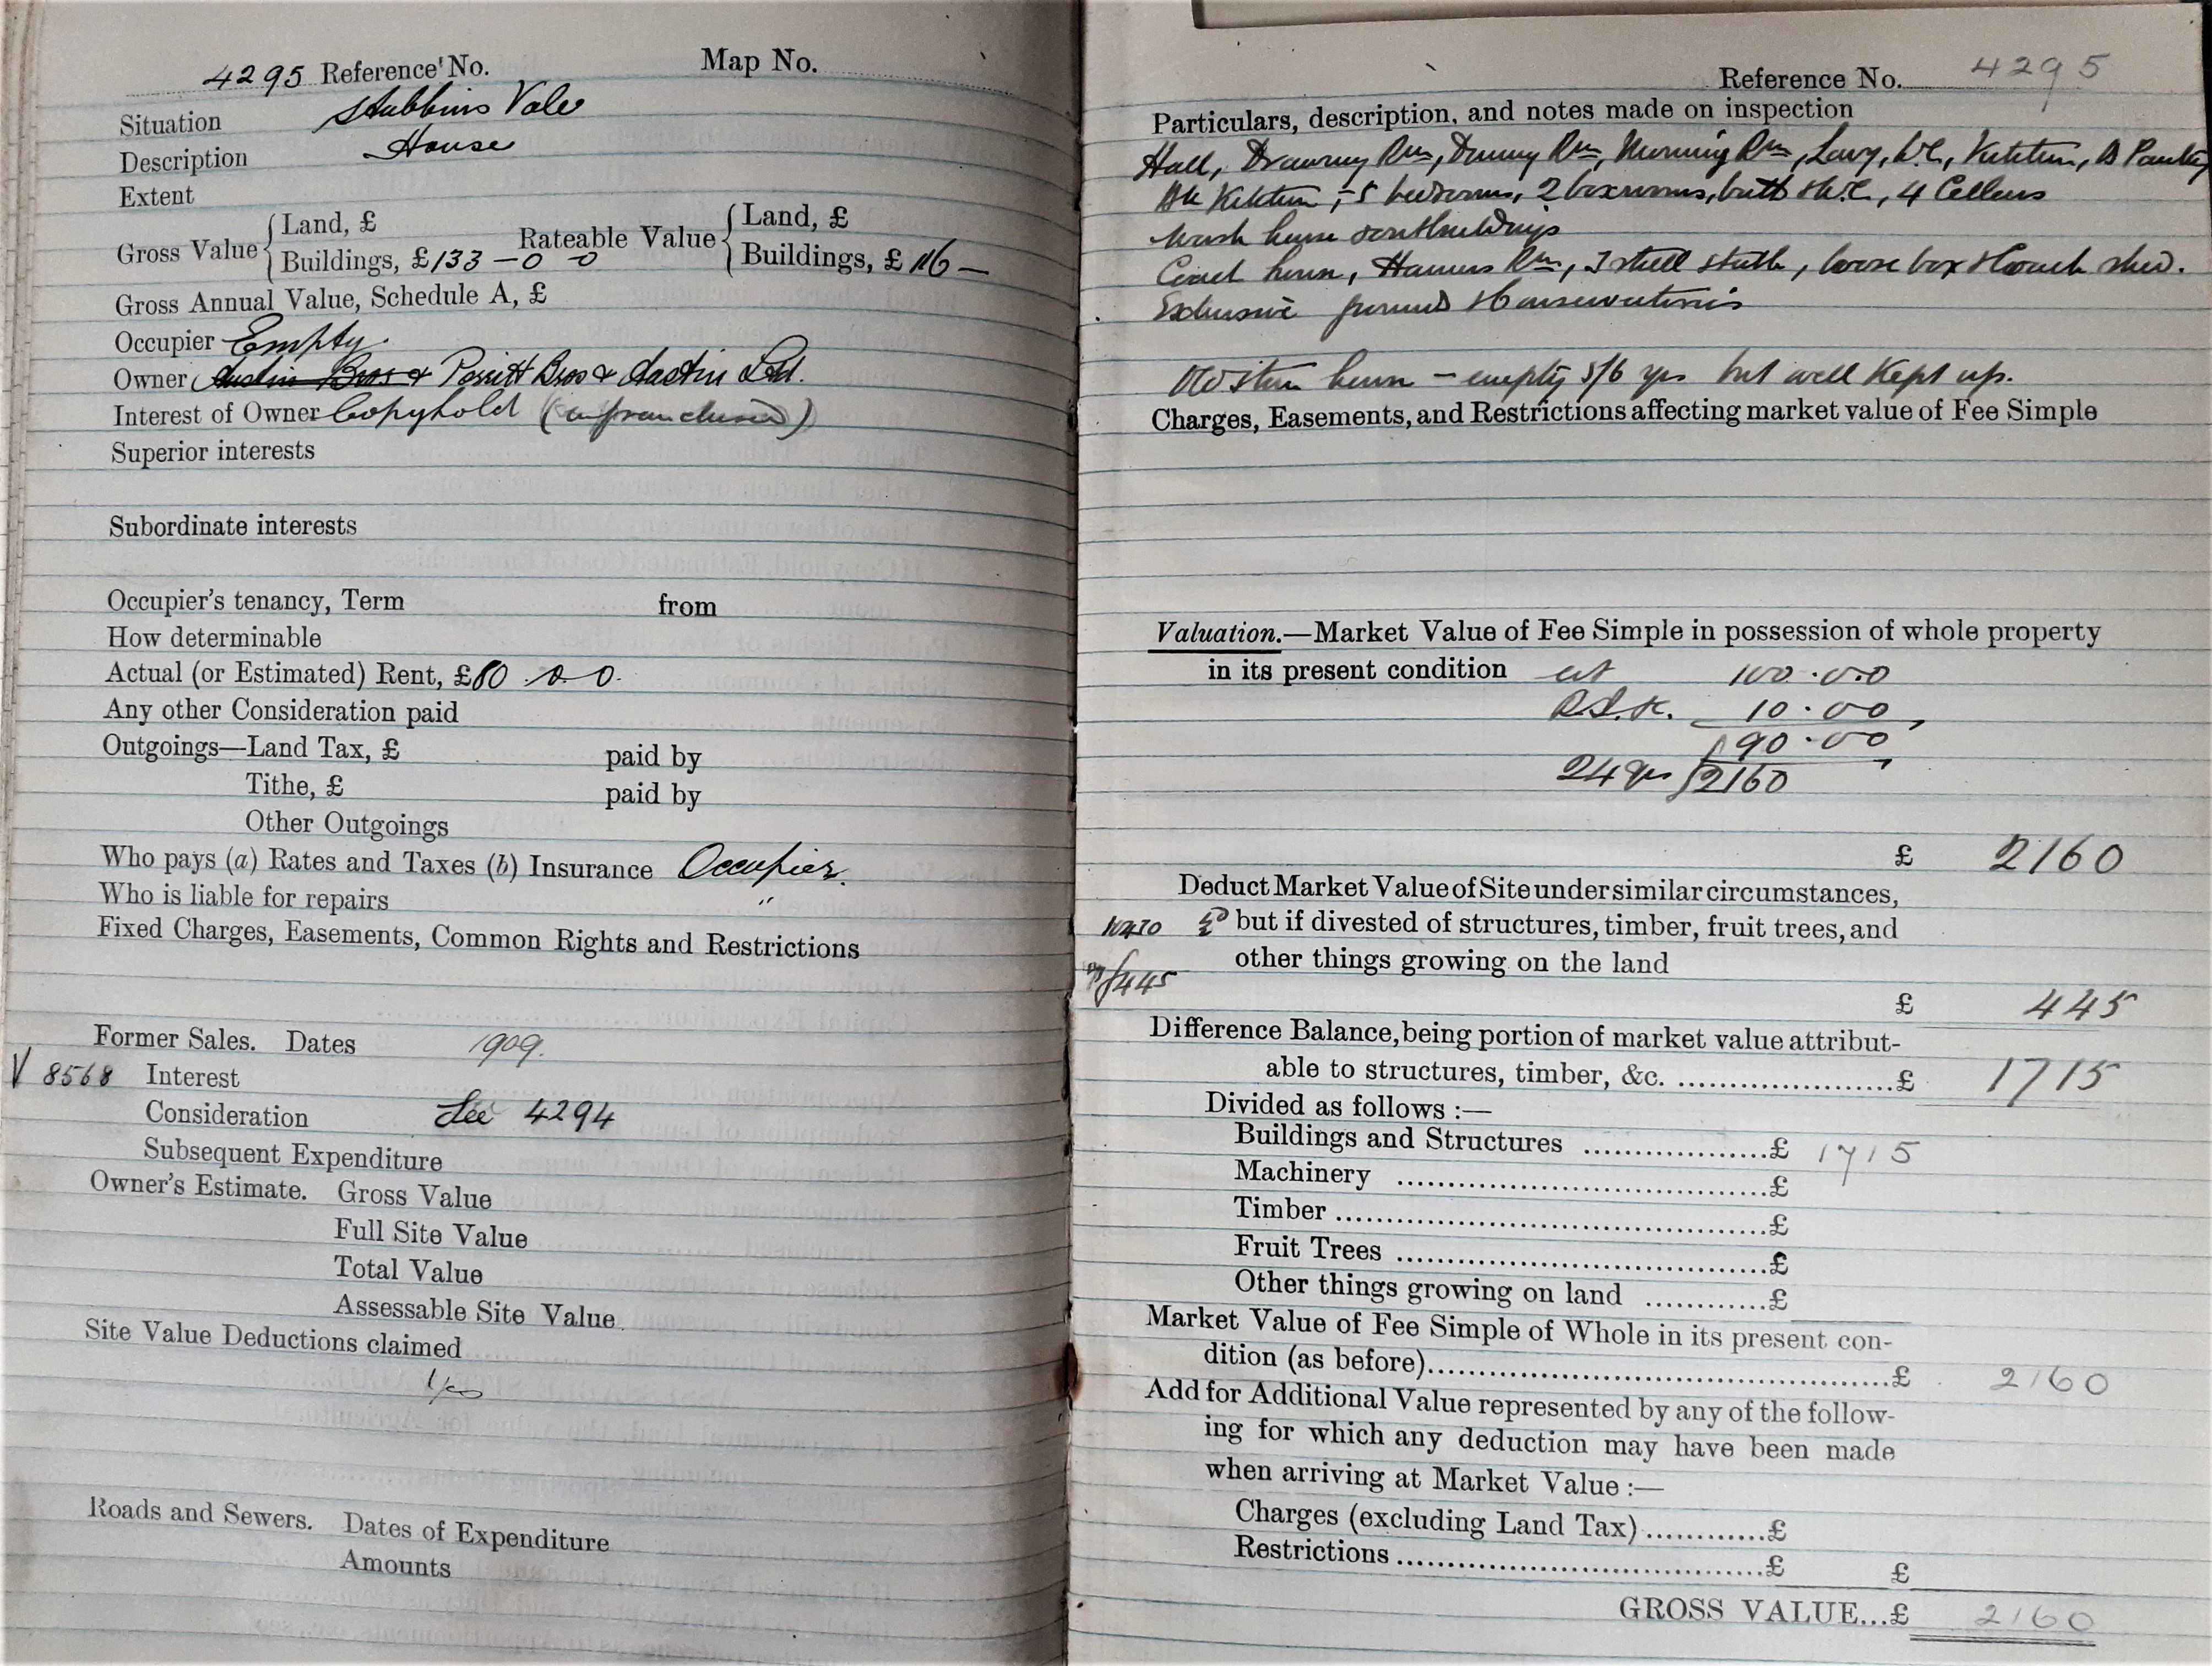 4295 Reference No. Map No.
Situation Stubbins Vale
Description House
Extent
Gross Value { Land, £ Rateable Value { Land, £
Buildings, £133-0-0 Buildings, £116 —
Gross Annual Value, Schedule A, £
Occupier Empty.
Owner Austin Bros & Porritt Bros & Austin Ltd.
Interest of Owner Copyhold (enfranchised)
Superior interests
Subordinate interests
Occupier's tenancy, Term from
How determinable
Actual (or Estimated) Rent, £80.0.0.
Any other Consideration paid
Outgoings—Land Tax, £ paid by
Tithe, £ paid by
Other Outgoings
Who pays (a) Rates and Taxes (b) Insurance Occupier.
Who is liable for repairs "
Fixed Charges, Easements, Common Rights and Restrictions
Former Sales. Dates 1909.
V 8568 Interest
Consideration See 4294
Subsequent Expenditure
Owner's Estimate. Gross Value
Full Site Value
Total Value
Assessable Site Value
Site Value Deductions claimed
Yes
Roads and Sewers. Dates of Expenditure
Amounts
Reference No. 4295
Particulars, description, and notes made on inspection
Hall, Drawing Rm, Dining Rm, Morning Rm, Lavy, W.C, Kitchen, B Pantry
Bk Kitchen, 5 bedrooms, 2 boxrooms, bath & W.C, 4 Cellars
Wash house & outbuildings
Coach house, Harness Rm, 3 stall stable, loose box & Coach shed.
Extensive grounds & Conservatories
Old stone house – empty 5/6 yrs but well kept up.
Charges, Easements, and Restrictions affecting market value of Fee Simple
Valuation.—Market Value of Fee Simple in possession of whole property
in its present condition at 100.0.0
10.00
90.00
24 yrs 2160
£ 2160
Deduct Market Value of Site under similar circumstances,
but if divested of structures, timber, fruit trees, and
other things growing on the land
£445
£ 445
Difference Balance, being portion of market value attribut-
able to structures, timber, &c. £ 1715
Divided as follows :—
Buildings and Structures £ 1715
Machinery £
Timber £
Fruit Trees £
Other things growing on land £
Market Value of Fee Simple of Whole in its present con-
dition (as before) £ 2160
Add for Additional Value represented by any of the follow-
ing for which any deduction may have been made
when arriving at Market Value :—
Charges (excluding Land Tax) £
Restrictions £ £
GROSS VALUE...£ 2160